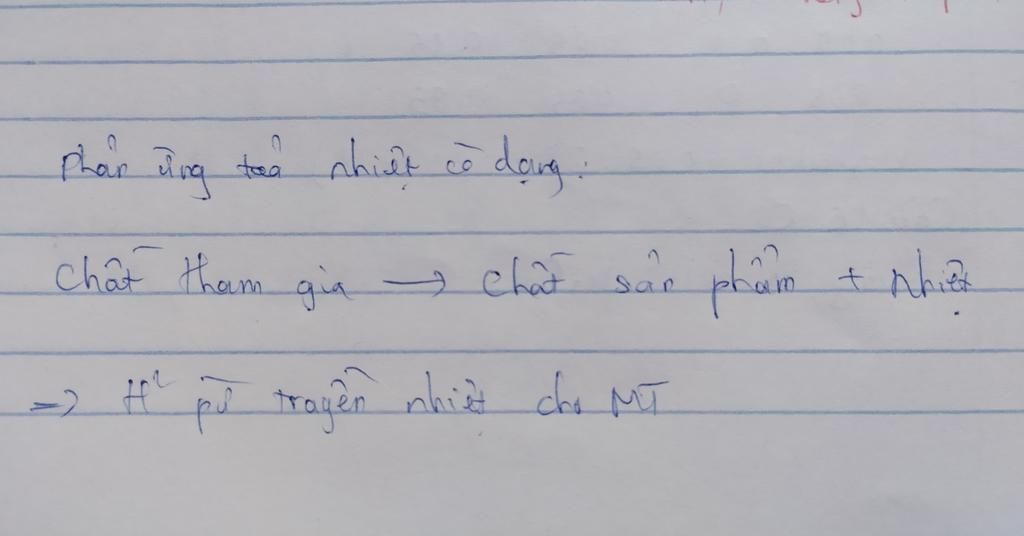 Phản ứng toả nhiệt có dạng:
Chất tham gia → Chất sản phẩm + nhiệt
=> H² pứ truyền nhiệt cho MT